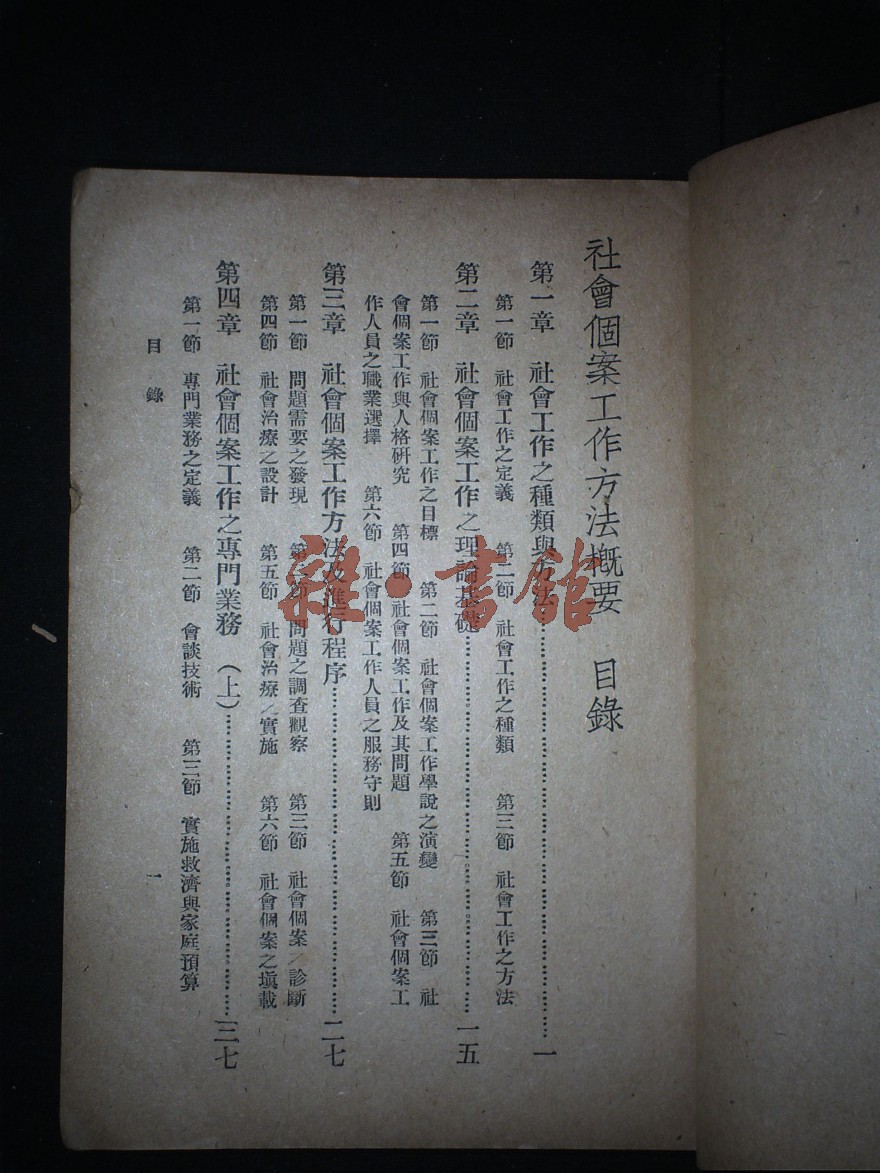 社會個案工作方法概要 目錄
第一章 社會工作之種類與方法……一
第一節 社會工作之定義 第二節 社會工作之種類 第三節 社會工作之方法
第二章 社會個案工作之理論基礎……一五
第一節 社會個案工作之目標 第二節 社會個案工作學說之演變 第三節 社
會個案工作與人格研究 第四節 社會個案工作及其問題 第五節 社會個案工
作人員之職業選擇 第六節 社會個案工作人員之服務守則
第三章 社會個案工作方法及進行程序……二七
第一節 問題需要之發現 第二節 問題之調查觀察 第三節 社會個案之診斷
第四節 社會治療之設計 第五節 社會治療之實施 第六節 社會個案之塡載
第四章 社會個案工作之專門業務(上)……三七
第一節 專門業務之定義 第二節 會談技術 第三節 實施救濟與家庭預算
目錄 一
雜·書館